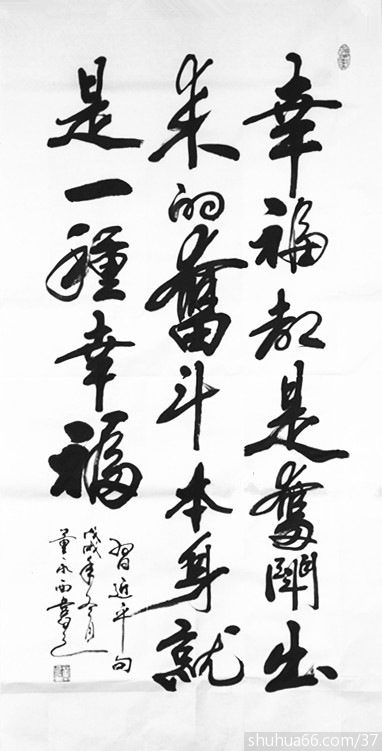 幸福都是奮鬥出
来的奮斗本身就
是一種幸福
習近平句
戊戌年冬月
董永西書
shuhua66.com/37